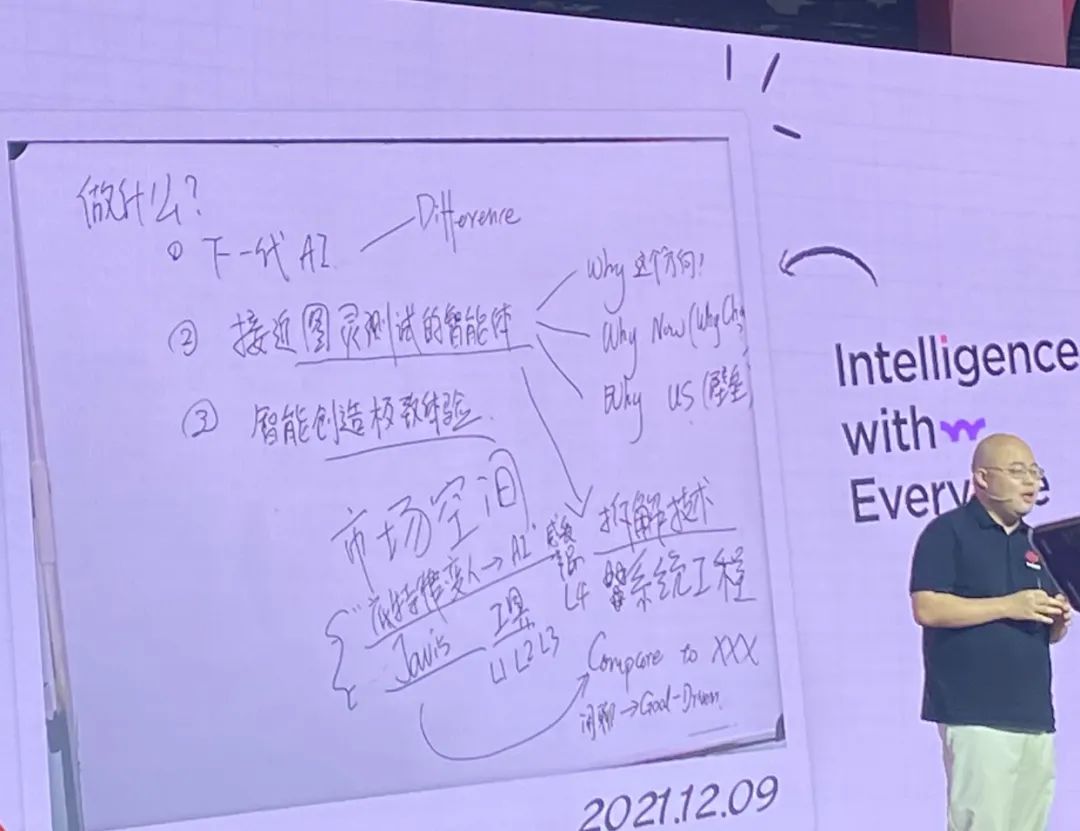 做什么?
① 下一代 AI — Difference
② 接近图灵测试的智能体
Why 这个方向!
Why Now (Why Ch
Why US (壁垒
③ 智能创造极致体验
市场空间
底特律变人→AI
L4
拆解技术
系统工程
Javis 工具
L1 L2 L3
Compare to XXX
闲聊→Goal-Driven
2021.12.09
Intelligence
with
Every e